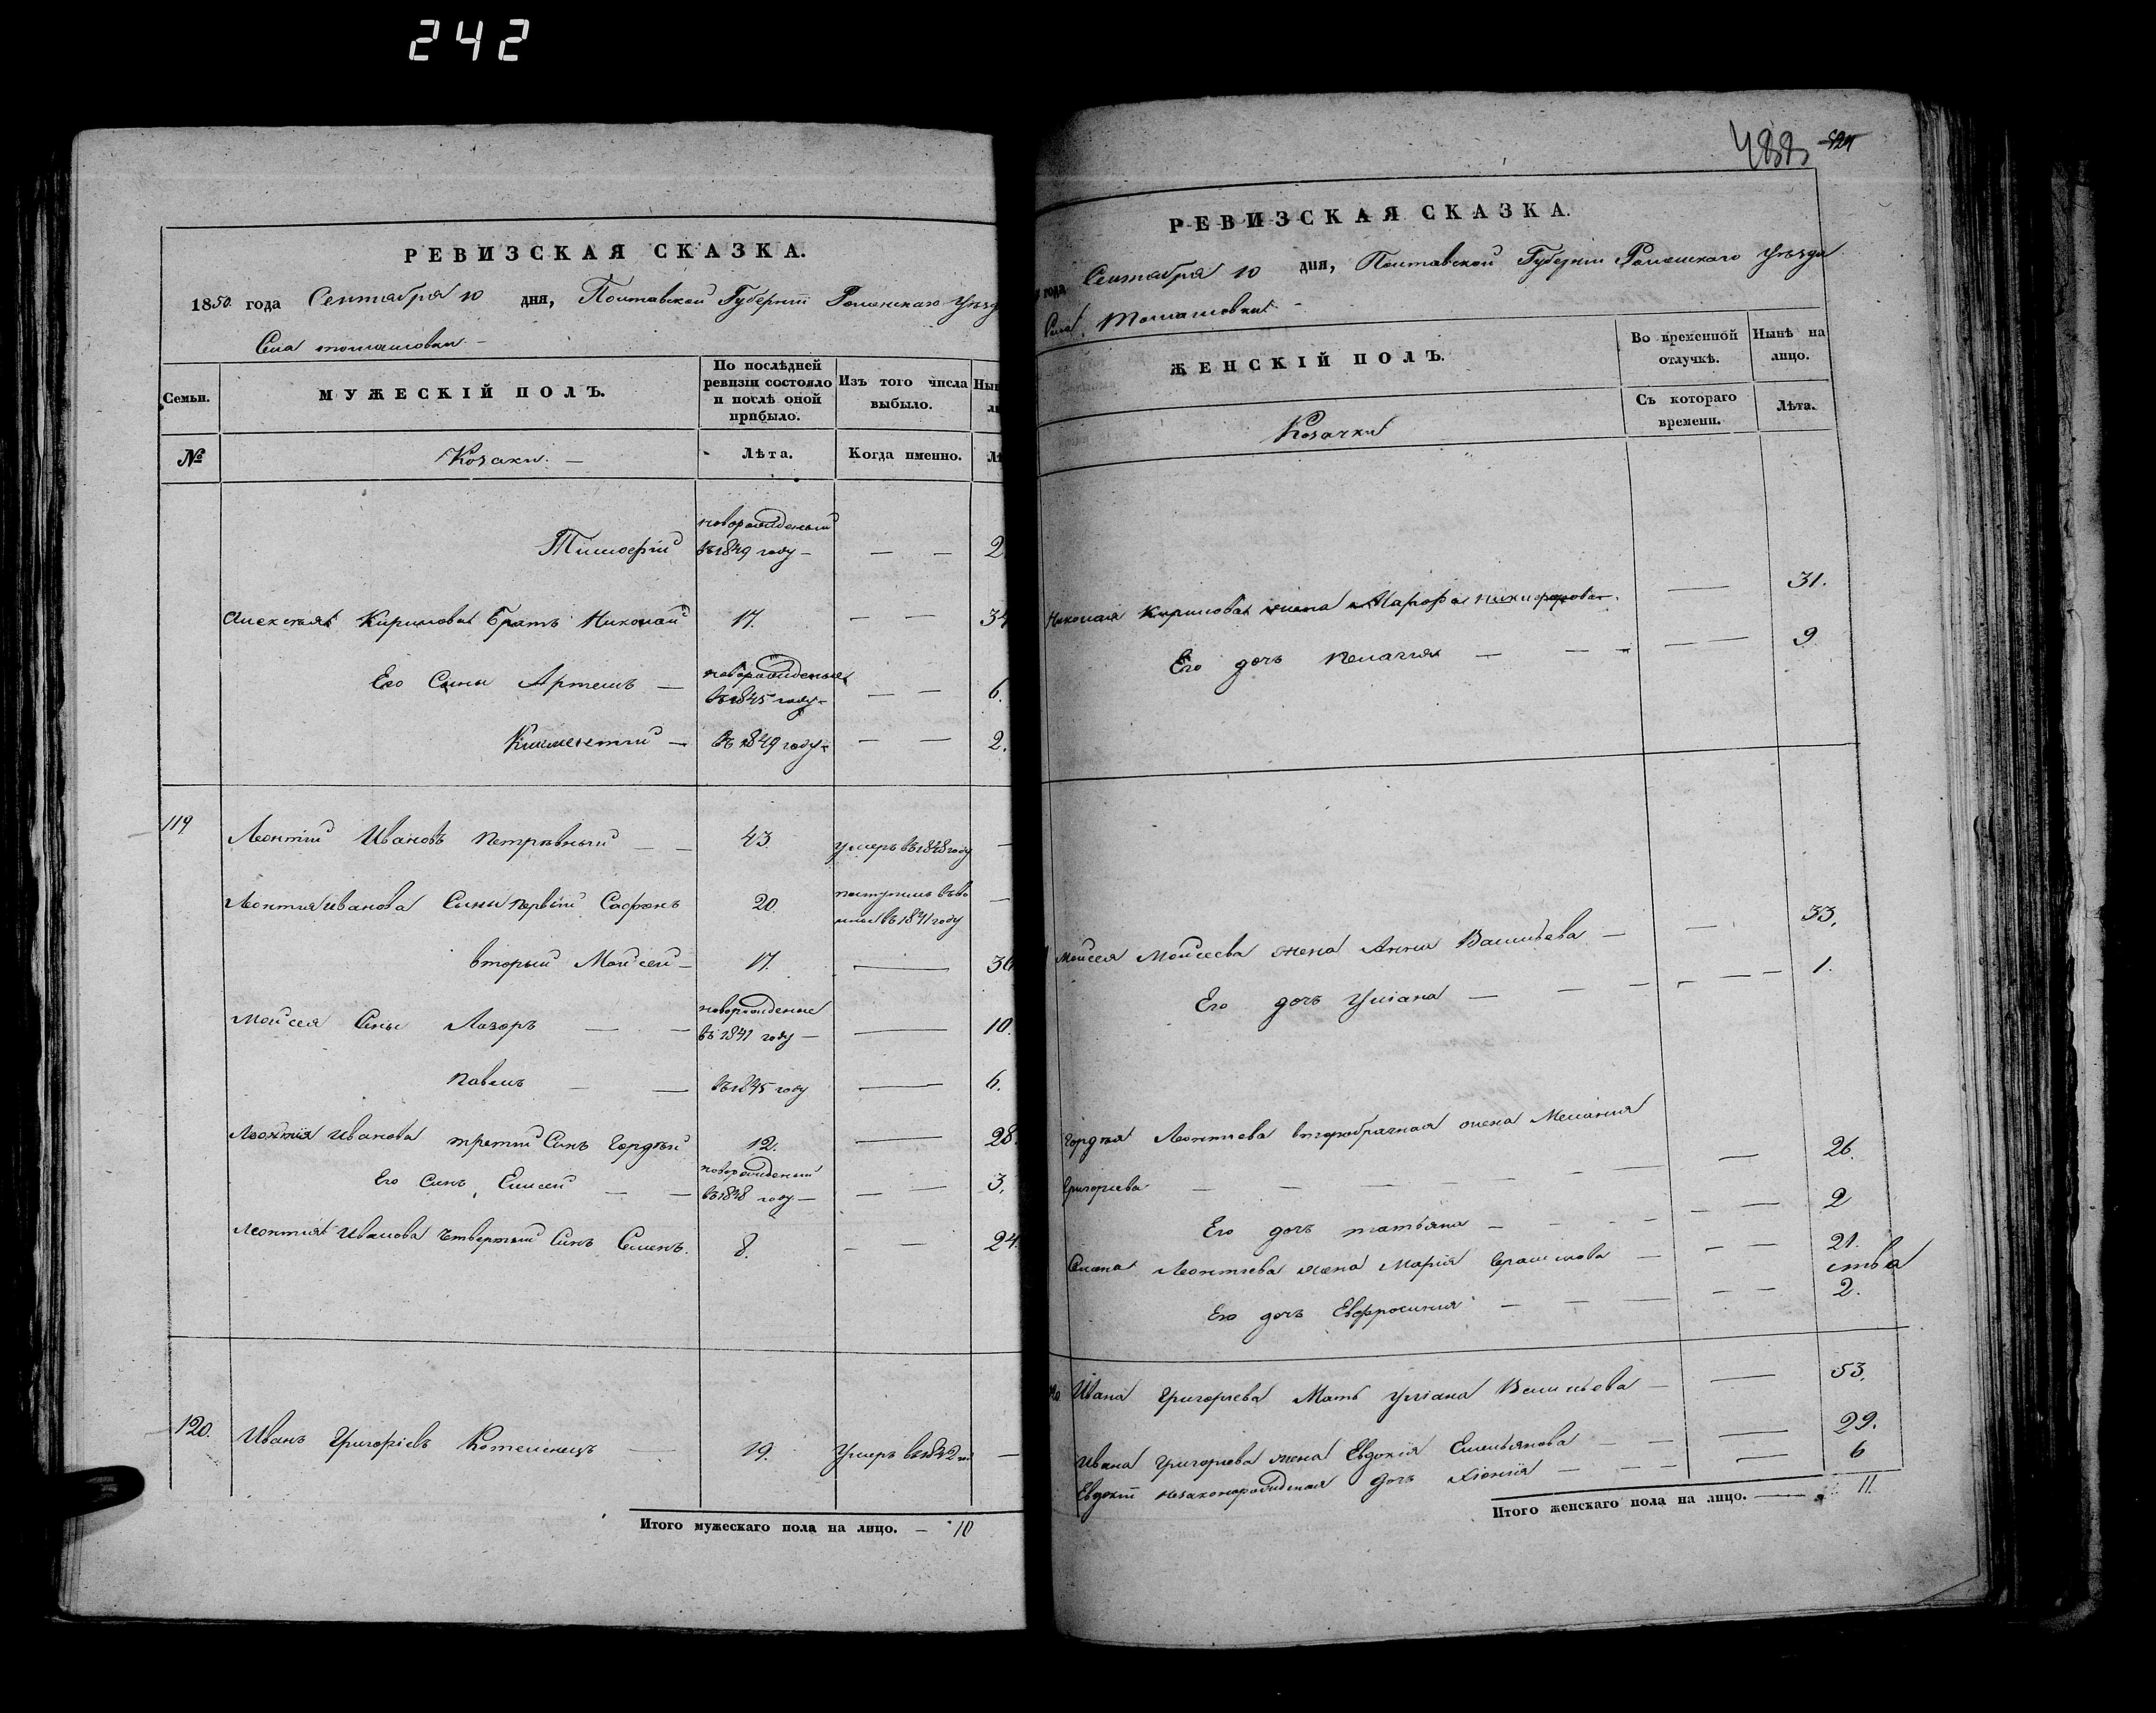 242
РЕВИЗСКАЯ СКАЗКА.
1850 года Сентября 10 дня, Полтавской Губерніи Роменскаго Уѣзд
Села томашовки
Семьи.
МУЖЕСКІЙ ПОЛЪ.
По послѣдней ревизіи состояло и послѣ оной прибыло.
Изъ того числа выбыло.
№
Козаки.
Лѣта.
Когда именно.
новорожденый
Тимофій въ 1849 году — — — 2
Алексѣя Кирилова Братъ Николай 17. — — 34
новорожденые
Его Сыны Артемъ — въ 1845 году — — — 6.
Климентий — въ 1849 году — — — 2.
119 Леонтий Ивановъ Петрѣвный — — 43 умеръ въ 1848 году —
Леонтия Иванова Сыны первый Софронъ 20. поступилъ въ 1841 году —
вторый Мойсей — 17. —
новорожденые
Мойсея Сыны Лазоръ — — въ 1841 году — — 10.
Павелъ — — въ 1845 году — 6.
Леонтія Иванова третий Сынъ Гордѣй 12. — 28.
новорожденый
Его Сынъ Елисей — — въ 1848 году — — — 3.
Леонтия Иванова четвертый Сынъ Семенъ. 8. — — 24.
120. Иванъ Григоріевъ Котелевецъ — 19. Умеръ въ 1842 —
Итого мужескаго пола на лицо. — 10
488 524
РЕВИЗСКАЯ СКАЗКА.
года Сентября 10 дня, Полтавской Губерніи Роменскаго Уѣзда
Села Томашовки
ЖЕНСКІЙ ПОЛЪ.
Во временной отлучкѣ.
Нынѣ на лицо.
Козачки
Съ котораго времени.
Лѣта.
Николая Кирилова жена Марфа Никифорова — 31.
Его дочь Пелагия — — — 9
Мойсея Мойсеева жена Анна Васильева — — 33.
Его дочь Уліана — — — 1.
Гордѣя Леонтиева второбрачная жена Мелания
Григориева — — — — — 26.
Его дочь татьяна — — — 2
Семена Леонтиева жена Мария Герасимова — — 21.
ства
Его дочь Евфросиния — — — 2.
Ивана Григориева Мать Уліана Васильева — — 53.
Ивана Григориева жена Евдокія Емельянова — — 29.
Евдокіи незаконорожденая дочь Хіонія — — 6
Итого женскаго пола на лицо. — 11.